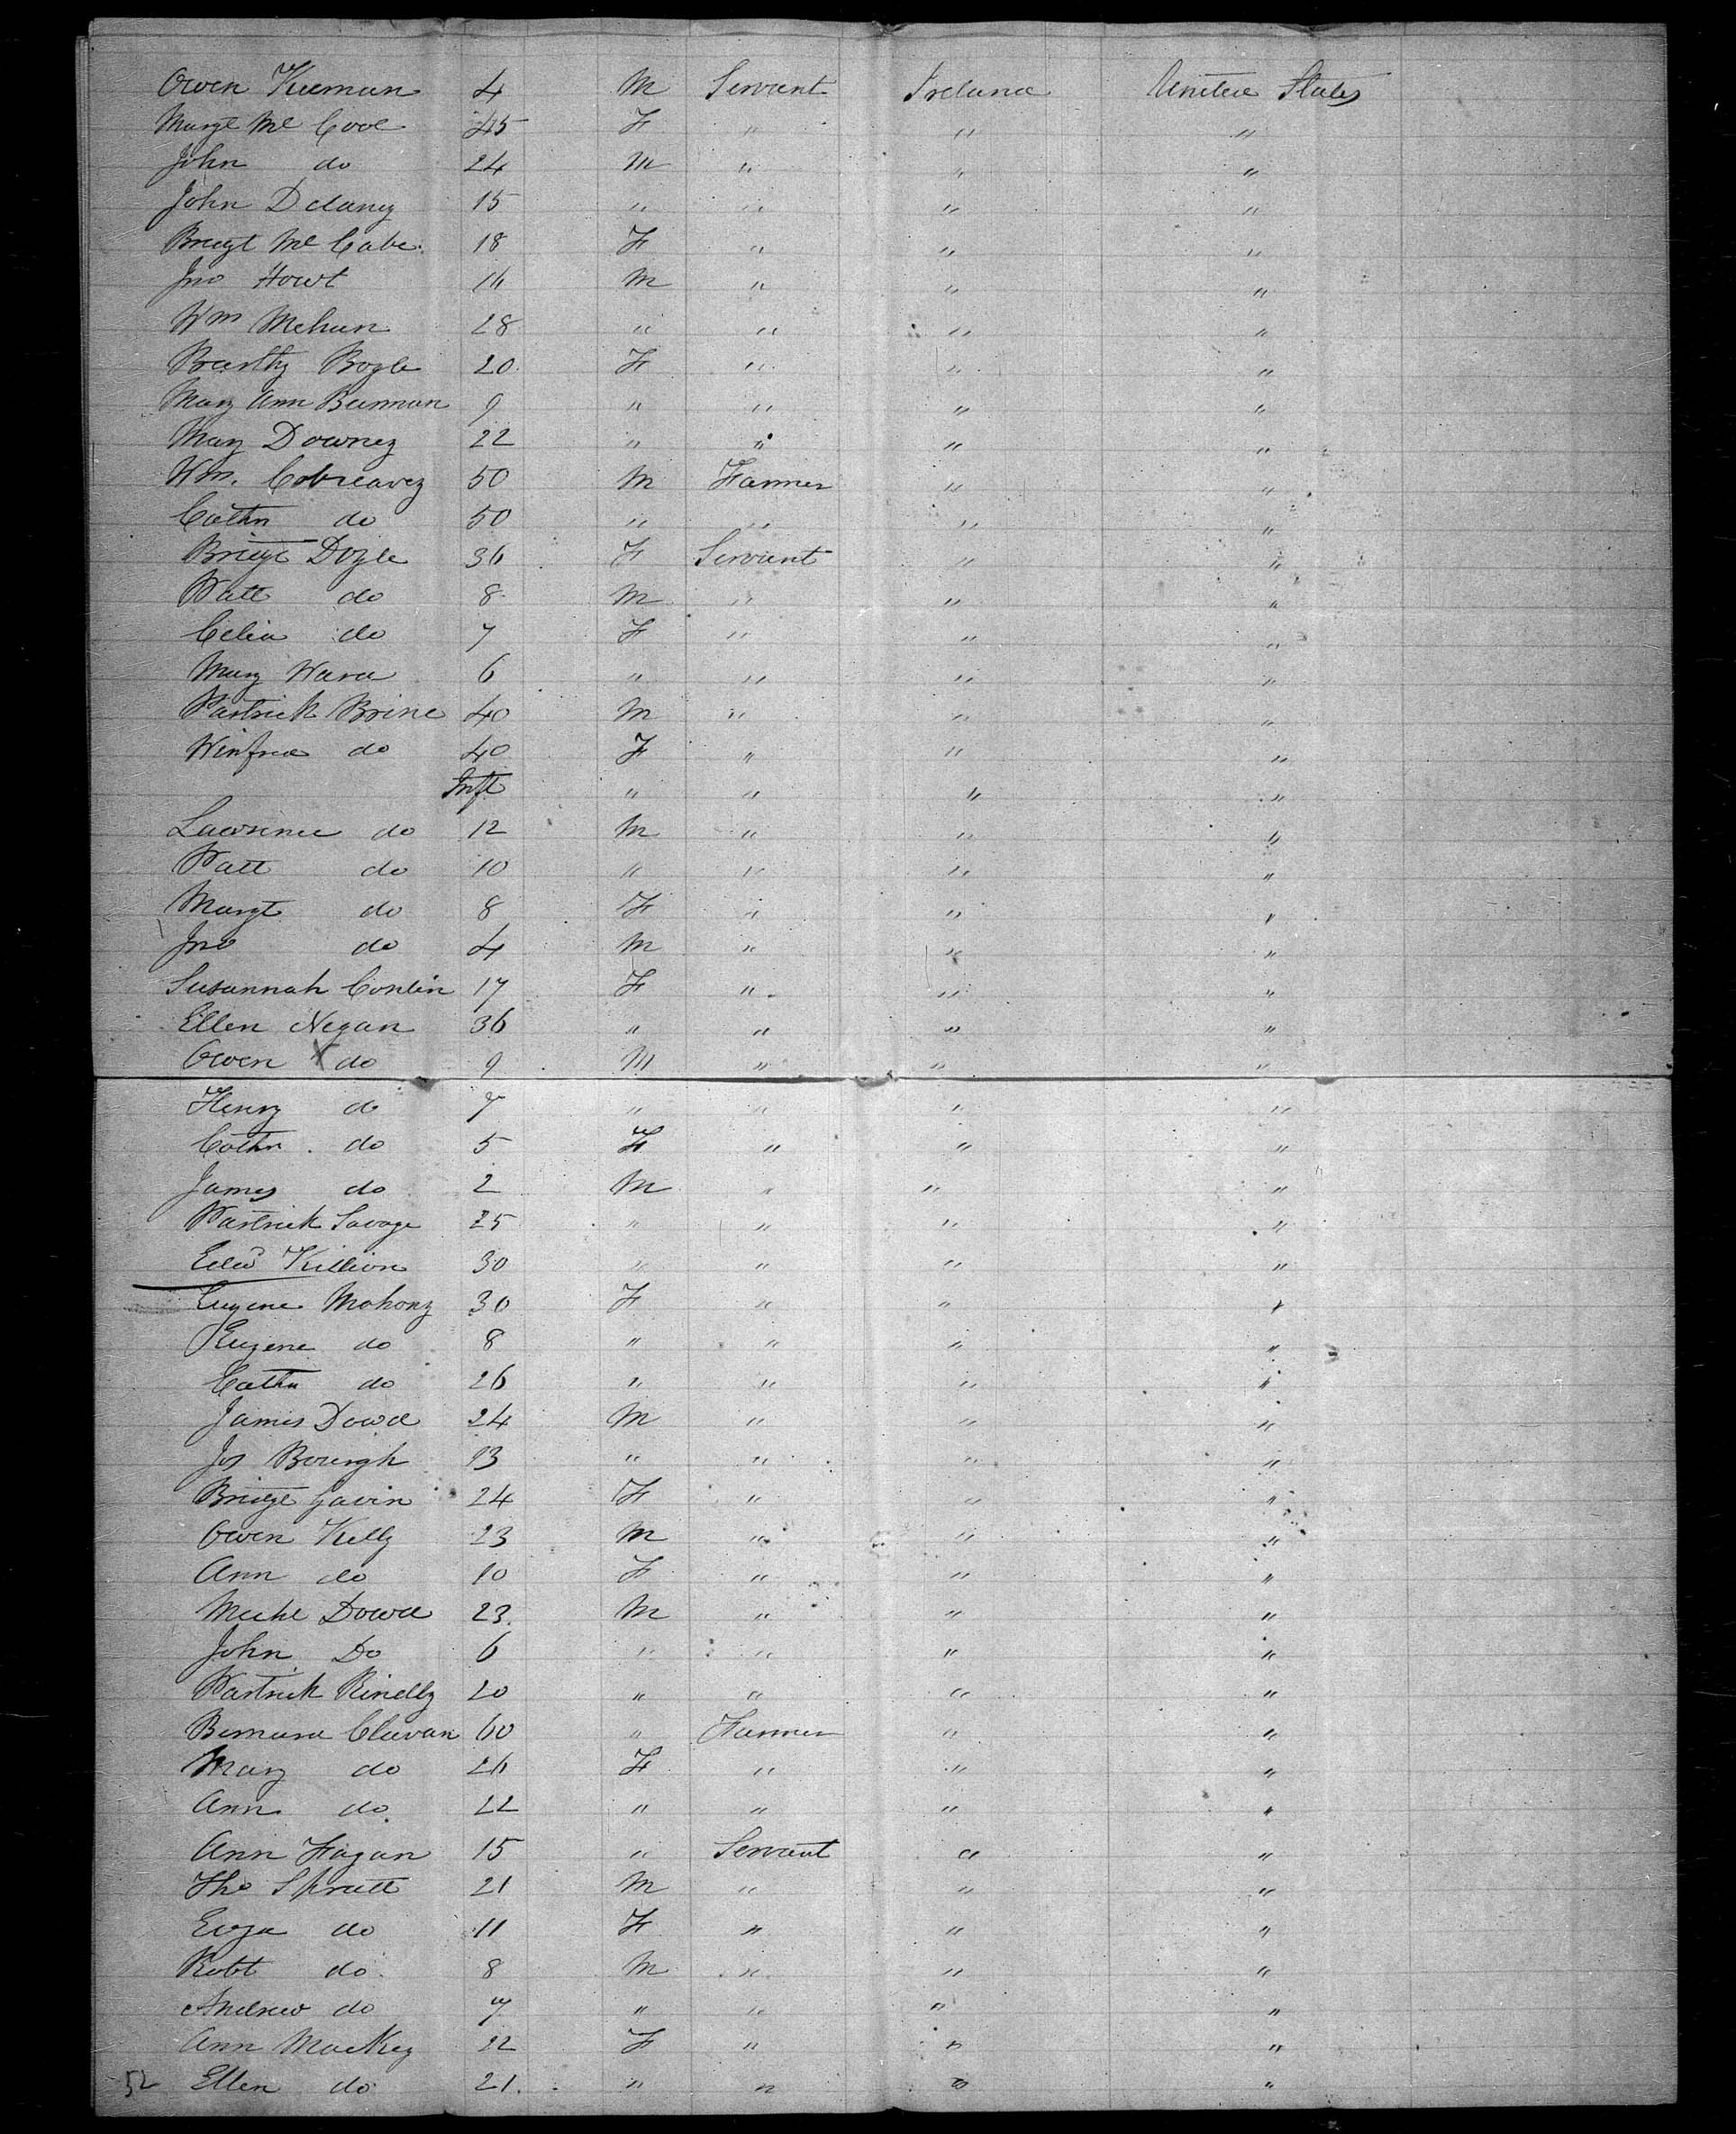 Owen Keenan 4 M Servant Ireland United States
Margt Mc Cool 45 F " " "
John do 24 M " " "
John Delaney 15 " " " "
Bridgt Mc Cabe 18 F " " "
Jno Howt 16 M " " "
Wm Mehan 28 " " " "
Boyle 20 F " " "
Mary Ann 9 " " " "
Mary Downey 22 " " " "
Wm. 50 M Farmer " "
Cathn do 50 " " " "
Bridgt Doyle 36 F Servant " "
Patt do 8 M " " "
Celia do 7 F " " "
Mary Ward 6 " " " "
Patrick Brine 40 M " " "
Winfred do 40 F " " "
Inft " " " "
Lawrence do 12 M " " "
Patt do 10 " " " "
Margt do 8 F " " "
Jno do 4 M " " "
Susannah Conlin 17 F " " "
Ellen Negan 36 " " " "
Owen do 9 M " " "
Henry do 7 " " " "
Cathn do 5 F " " "
James do 2 M " " "
Patrick Savage 25 " " " "
Edwd Killion 30 " " " "
Eugene Mahony 30 F " " "
Eugene do 8 " " " "
Cathn do 26 " " " "
James Dowd 24 M " " "
Jos Bourgh 13 " " " "
Bridgt Gavin 24 F " " "
Owen Kelly 23 M " " "
Ann do 10 F " " "
Michl Dowd 23 M " " "
John Do 6 " " " "
Patrick Rinelly 20 " " " "
Bernard Clavan 60 " Farmer " "
Mary do 26 F " " "
Ann do 22 " " " "
Ann Fagan 15 " Servant " "
Tho Spratt 21 M " " "
Eliza do 11 F " " "
Robt do 8 M " " "
Andrew do 7 " " " "
Ann Mackey 22 F " " "
52 Ellen do 21 " " " "